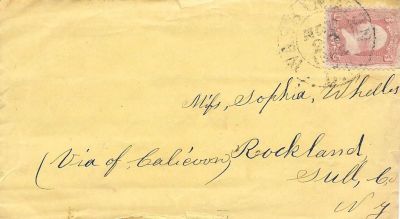 Miss, Sophia, Wheller
(Via of, Calicoon) Rockland,
Sull, Co
N y